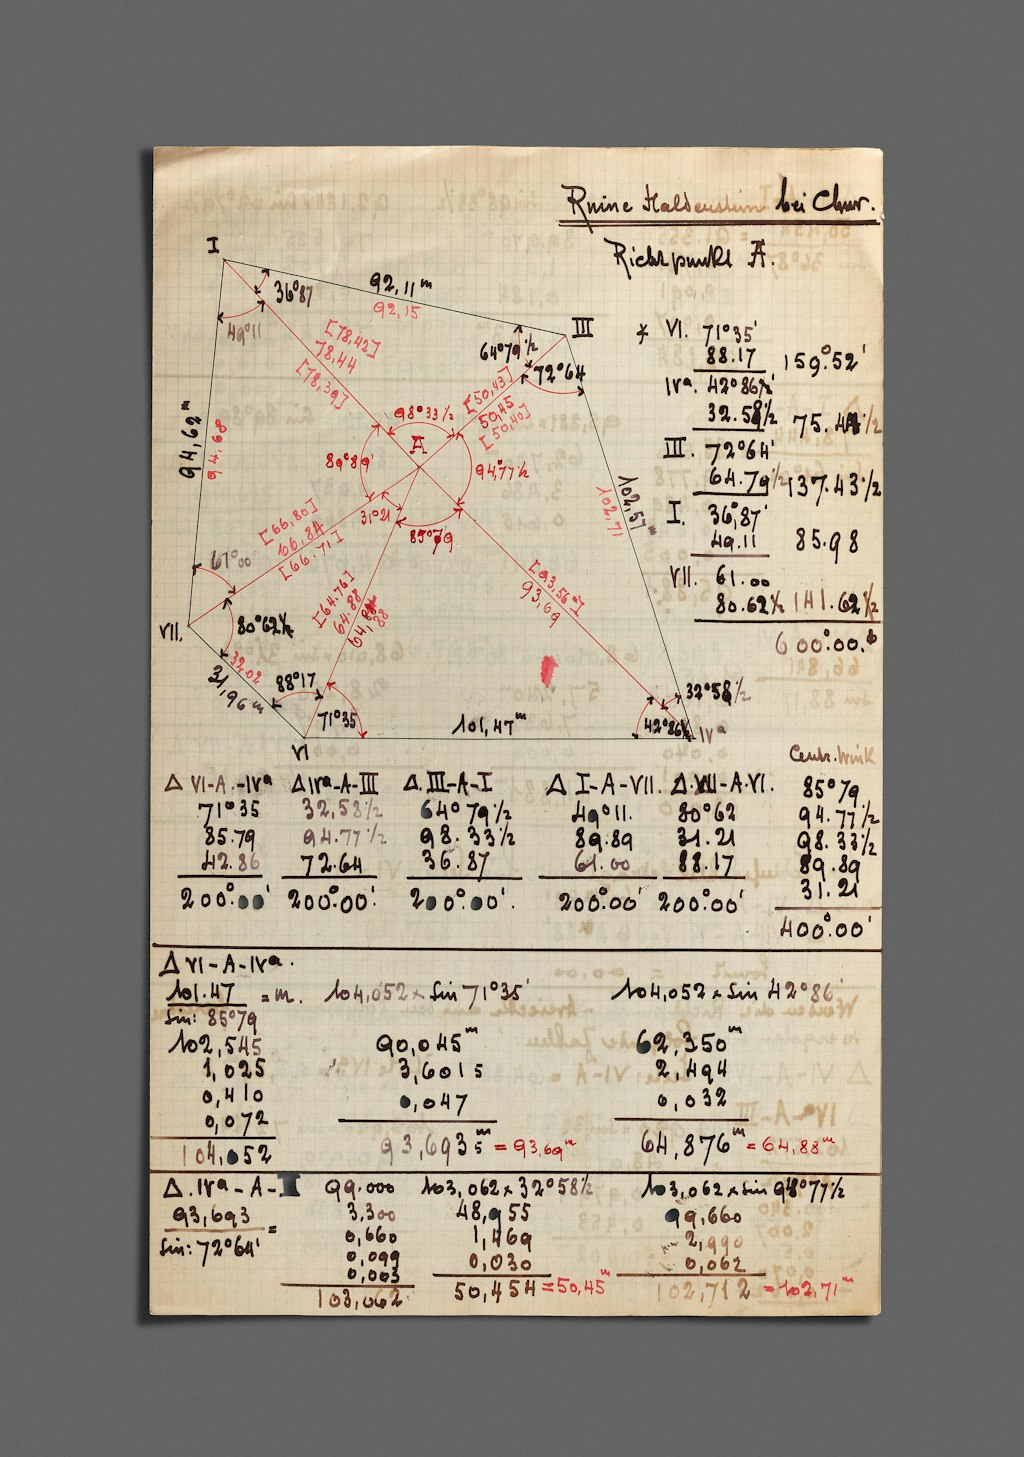 Ruine Haldenstein bei Chur.
Richtpunkt A.
I
36°87
49°11
92,11 m
92,15
III
64°79 1/2
72°64
[78,42]
78,44
[78,39]
[50,43]
50,45
[50,40]
98°33 1/2
A
89°89'
94°77 1/2
31°21
85°79
94,62 m
94,68
102,57 m
102,71
[66,80]
66,84
[66,71]
61°00
VII.
80°62 1/2
32,02
31,96 m
[64,76]
64,88
64,88
88
[93,56]
93,69
88°17
71°35
VI
101,47 m
32°58 1/2
42°86 1/2
IVa
* VI. 71°35'
88.17 159°52'
IVa. 42°86 1/2'
32.58 1/2 75.44 1/2
III. 72°64'
64.79 1/2 137.43 1/2
I. 36°87'
49.11 85.98
VII. 61.00
80.62 1/2 141.62 1/2
600°.00'
Δ VI-A.-IVa Δ IVa-A-III Δ.III-A-I Δ I-A-VII. Δ.VII-A-VI. Centr. Wink
71°35 32,58 1/2 64°79 1/2 49°11. 80°62 85°79
85.79 94.77 1/2 98.33 1/2 89.89 31.21 94.77 1/2
42.86 72.64 36.87 61.00 88.17 98.33 1/2
200°.00' 200°.00' 200°.00'. 200°.00' 200°.00' 89.89
31.21
400°.00'
Δ VI-A-IVa.
101.47 = m. 104,052 × Sin 71°35' 104,052 × Sin 42°86'
Sin: 85°79
102,545 90,045 m 62,350 m
1,025 3,6015 2,494
0,410 0,047 0,032
0,072
104,052 93,6935 m = 93,69 m 64,876 m = 64,88 m
Δ. IVa-A-I 99.000 103,062 × 32°58 1/2 103,062 × Sin 94°77 1/2
93,693 = 3.300 48,955 99,660
Sin: 72°64' 0,660 1,469 2,990
0,099 0,030 0,062
0,003
103,062 50,454 = 50,45 m 102,712 = 102,71 m